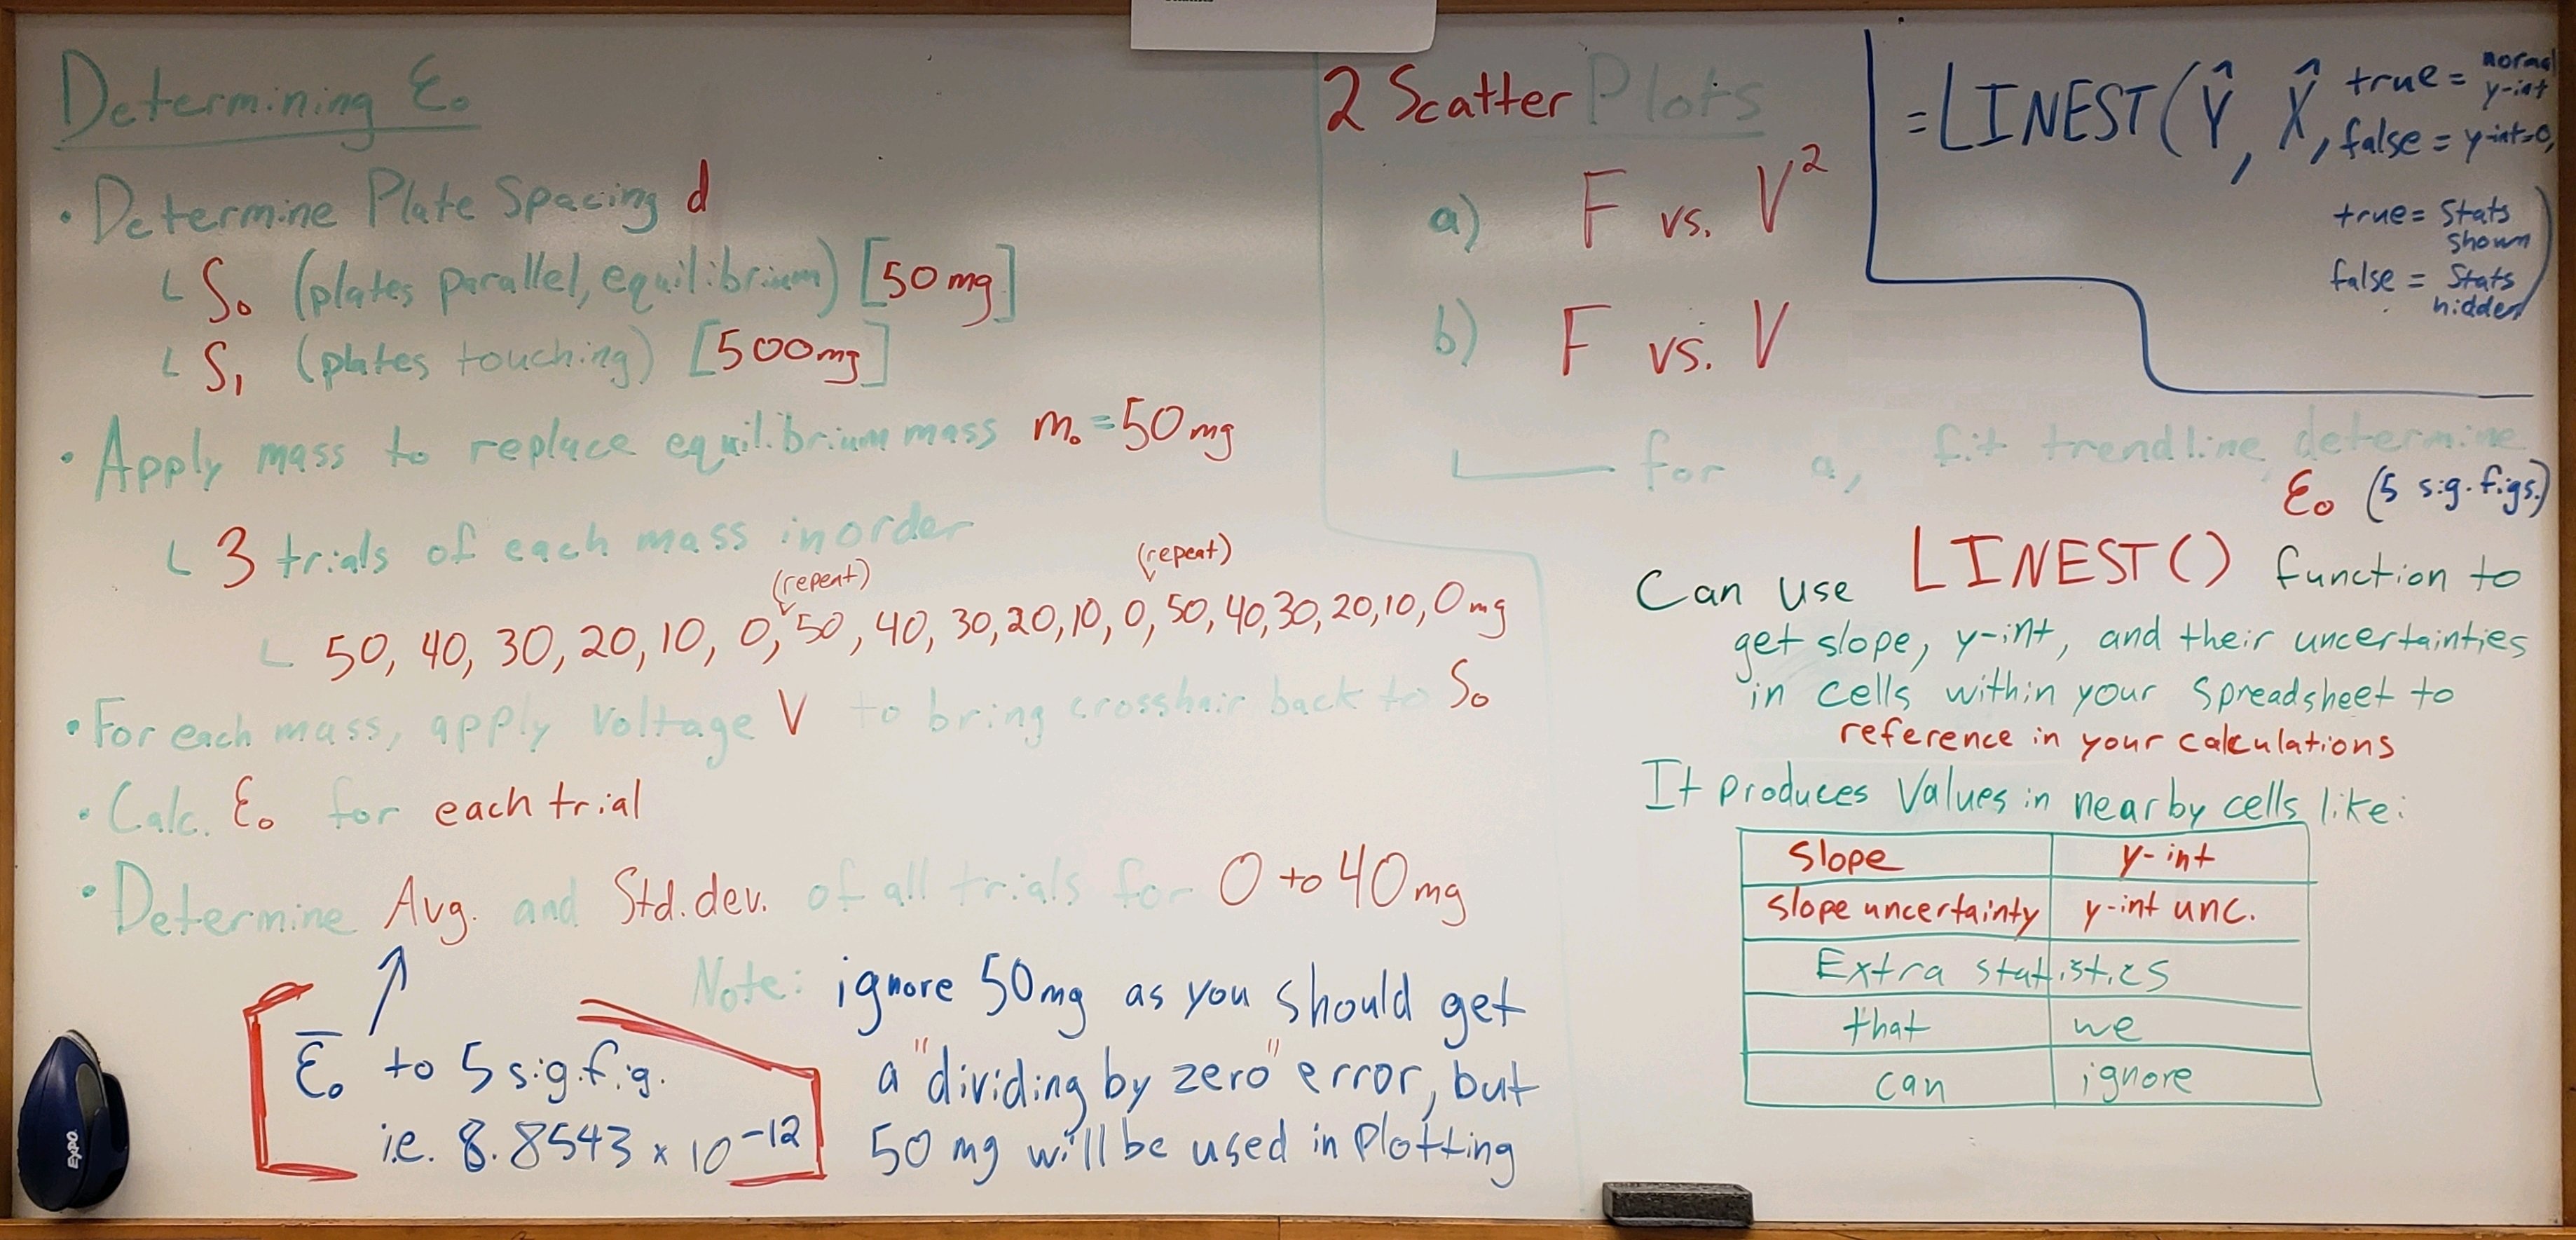 Determining ε₀
• Determine Plate Spacing d
└ S₀ (plates parallel, equilibrium) [50 mg]
└ S₁ (plates touching) [500mg]
• Apply mass to replace equilibrium mass m₀ = 50 mg
└ 3 trials of each mass in order
(repeat) (repeat)
└ 50, 40, 30, 20, 10, 0, 50, 40, 30, 20, 10, 0, 50, 40, 30, 20, 10, 0 mg
• For each mass, apply voltage V to bring crosshair back to S₀
• Calc. ε₀ for each trial
• Determine Avg. and Std. dev. of all trials for 0 to 40 mg
ε̄₀ to 5 sig. fig.
i.e. 8.8543 x 10⁻¹²
Note: ignore 50mg as you should get
a "dividing by zero" error, but
50 mg will be used in Plotting
EXPO
2 Scatter Plots
a) F vs. V²
b) F vs. V
for a, fit trendline, determine
ε₀ (5 sig. figs.)
=LINEST(Ŷ, X̂, true = normal y-int
false = y-int=0,
true = Stats shown
false = Stats hidden)
Can use LINEST() function to
get slope, y-int, and their uncertainties
in cells within your spreadsheet to
reference in your calculations
It produces values in nearby cells like:
Slope y-int
slope uncertainty y-int unc.
Extra statistics
that we
can ignore